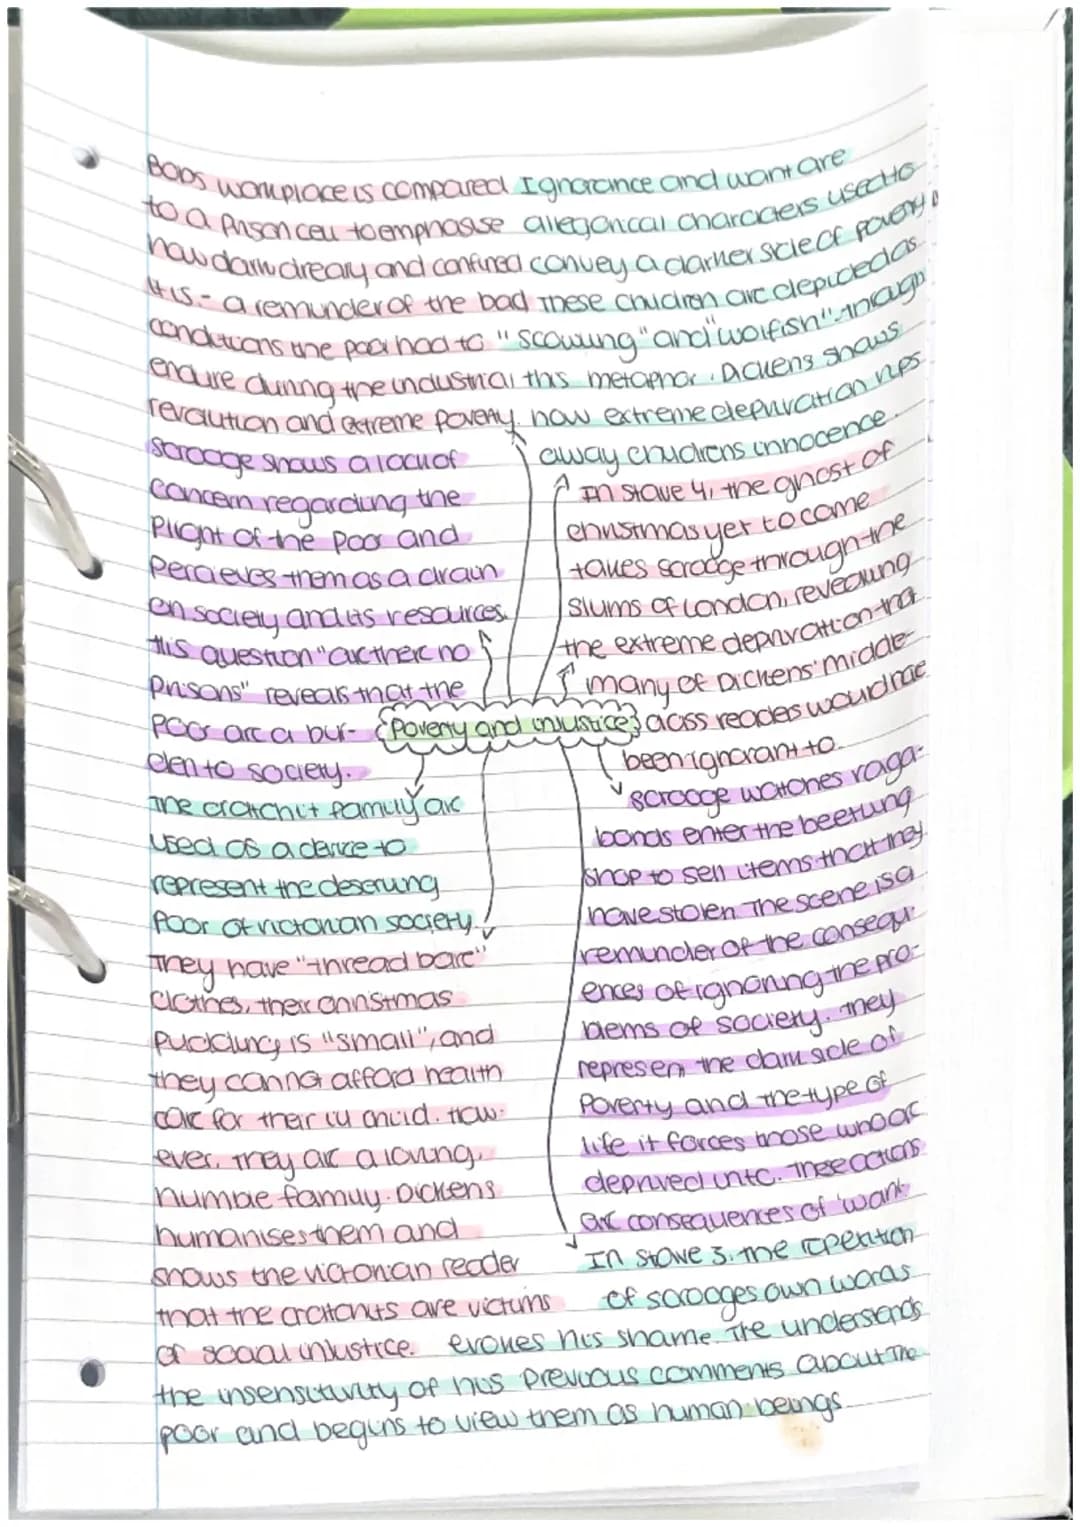 Bobs workplace is compared
to a prison cell to emphasise
how dark dreary and confined
it is - a reminder of the bad
conditions the poor had to
endure during the industrial
revolution and extreme poverty.
Ignorance and want are
allegorical characters used to
convey a darker side of poverty
These children are depicted as
"scowling" and "wolfish" - through
this metaphor. Dickens shows
how extreme deprivation rips
away childrens innocence
Scrooge shows a lack of
concern regarding the
plight of the poor and
percieves them as a drain
on society and its resources.
His question "are there no
prisons" reveals that the
poor are a bur-
den to society.
In stave 4, the ghost of
christmas yet to come
takes scrooge through the
slums of London, revealing
the extreme deprivation tha
many of Dickens' middle-
class readers would hae
been ignorant to.
Poverty and injustice
The cratchit family are
used as a device to
represent the deserving
poor of victorian society.
They have "thread bare"
clothes, their christmas
pudding is "small", and
they cannot afford health
care for their ill child. How-
ever, they are a loving,
humble family. Dickens
humanises them and
shows the victorian reader
that the cratchits are victims
of social injustice.
scrooge watches vaga-
bonds enter the beetling
shop to sell items that they
have stolen The scene is a
reminder of the consequ-
ences of ignoring the pro-
blems of society. They
represent the dark side of
poverty and the type of
life it forces those who are
deprived into. These actions
are consequences of 'want'
In stave 3, the repetition
of scrooges own words
evokes his shame. He understands
the insensitivity of his previous comments about the
poor and begins to view them as human beings